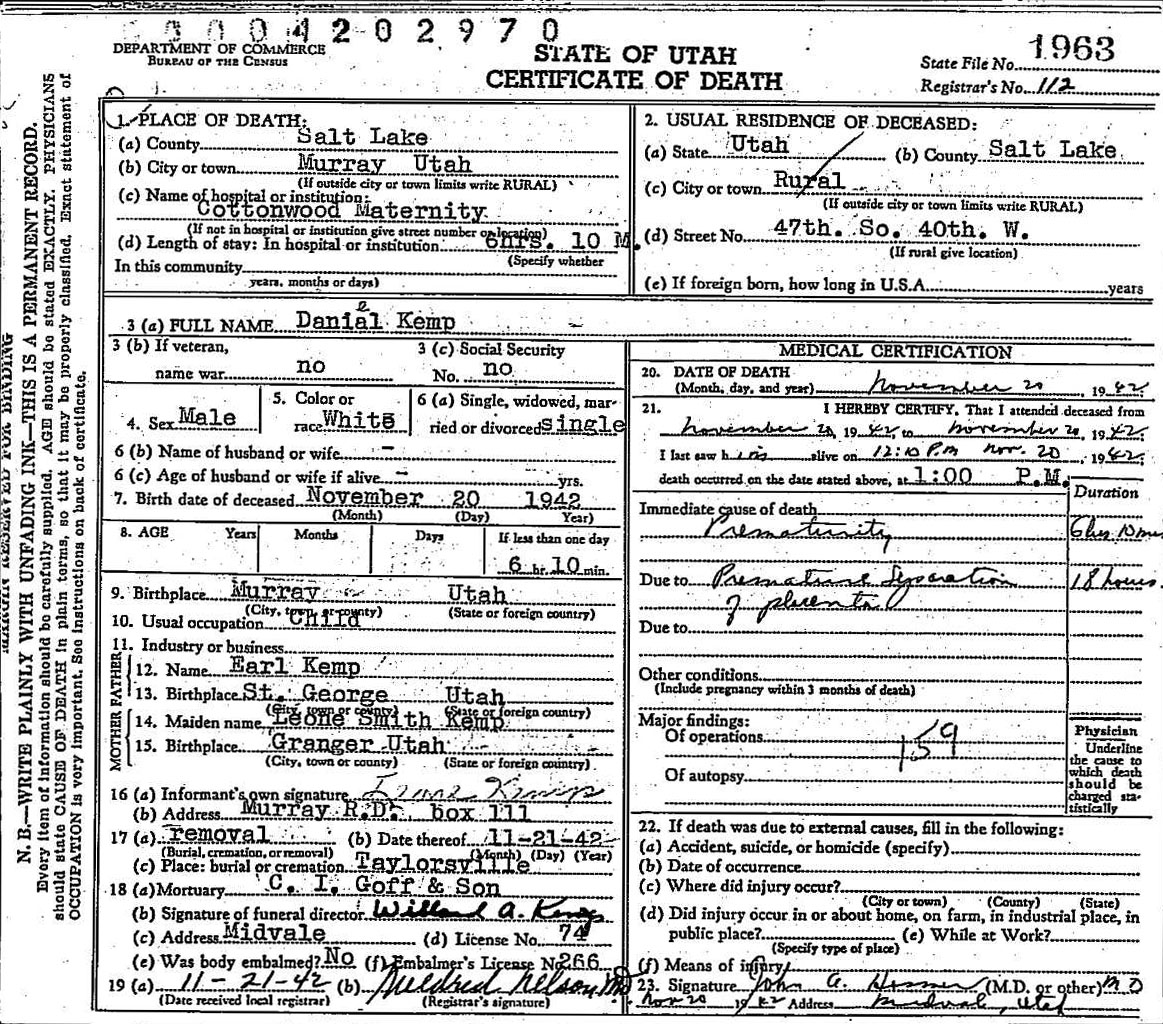 0004202970
DEPARTMENT OF COMMERCE
BUREAU OF THE CENSUS
STATE OF UTAH
CERTIFICATE OF DEATH
State File No. 1963
Registrar's No. 112
MARGIN RESERVED FOR BINDING
N. B.—WRITE PLAINLY WITH UNFADING INK—THIS IS A PERMANENT RECORD.
Every item of information should be carefully supplied. AGE should be stated EXACTLY. PHYSICIANS
should state CAUSE OF DEATH in plain terms, so that it may be properly classified. Exact statement of
OCCUPATION is very important. See instructions on back of certificate.
1. PLACE OF DEATH:
(a) County Salt Lake
(b) City or town Murray Utah
(If outside city or town limits write RURAL)
(c) Name of hospital or institution:
Cottonwood Maternity
(If not in hospital or institution give street number or location)
(d) Length of stay: In hospital or institution 6hrs. 10 M.
(Specify whether
In this community
years, months or days)
2. USUAL RESIDENCE OF DECEASED:
(a) State Utah (b) County Salt Lake
(c) City or town Rural
(If outside city or town limits write RURAL)
(d) Street No. 47th. So. 40th. W.
(If rural give location)
(e) If foreign born, how long in U.S.A. years
3 (a) FULL NAME Danial Kemp
e
3 (b) If veteran,
name war no
3 (c) Social Security
No. no
4. Sex Male
5. Color or
race White
6 (a) Single, widowed, mar-
ried or divorced single
6 (b) Name of husband or wife –
6 (c) Age of husband or wife if alive – yrs.
7. Birth date of deceased November 20 1942
(Month) (Day) Year)
8. AGE Years Months Days If less than one day
6 hr. 10 min.
9. Birthplace Murray Utah
(City, town, or county) (State or foreign country)
10. Usual occupation Child
11. Industry or business
FATHER
12. Name Earl Kemp
13. Birthplace St. George Utah
(City, town or county) (State or foreign country)
MOTHER
14. Maiden name Leone Smith Kemp
15. Birthplace Granger Utah
(City, town or county) (State or foreign country)
16 (a) Informant's own signature Kemp
(b) Address Murray R.D. box 111
17 (a) removal (b) Date thereof 11-21-42
(Burial, cremation, or removal) (Month) (Day) (Year)
(c) Place: burial or cremation Taylorsville
18 (a) Mortuary C. I. Goff & Son
(b) Signature of funeral director Willard A. Kemp
(c) Address Midvale (d) License No. 74
(e) Was body embalmed? No (f) Embalmer's License No 266
19 (a) 11-21-42 (b) Mildred Nelson MD
(Date received local registrar) (Registrar's signature)
MEDICAL CERTIFICATION
20. DATE OF DEATH
(Month, day, and year) November 20, 1942
21. I HEREBY CERTIFY, That I attended deceased from
November 20, 1942, to November 20, 1942;
I last saw him alive on 12:10 P.m Nov. 20, 1942;
death occurred on the date stated above, at 1:00 P.M.
Duration
Immediate cause of death
Prematurity 6 hrs 10 min
Due to Premature Separation 18 hours
of placenta
Due to
Other conditions
(Include pregnancy within 3 months of death)
Major findings:
Of operations
159
Of autopsy
Physician
Underline
the cause to
which death
should be
charged sta-
tistically
22. If death was due to external causes, fill in the following:
(a) Accident, suicide, or homicide (specify)
(b) Date of occurrence
(c) Where did injury occur?
(City or town) (County) (State)
(d) Did injury occur in or about home, on farm, in industrial place, in
public place? (e) While at Work?
(Specify type of place)
(f) Means of injury
23. Signature John A. (M.D. or other) M D
Nov 20 1942 Address Midvale, Utah